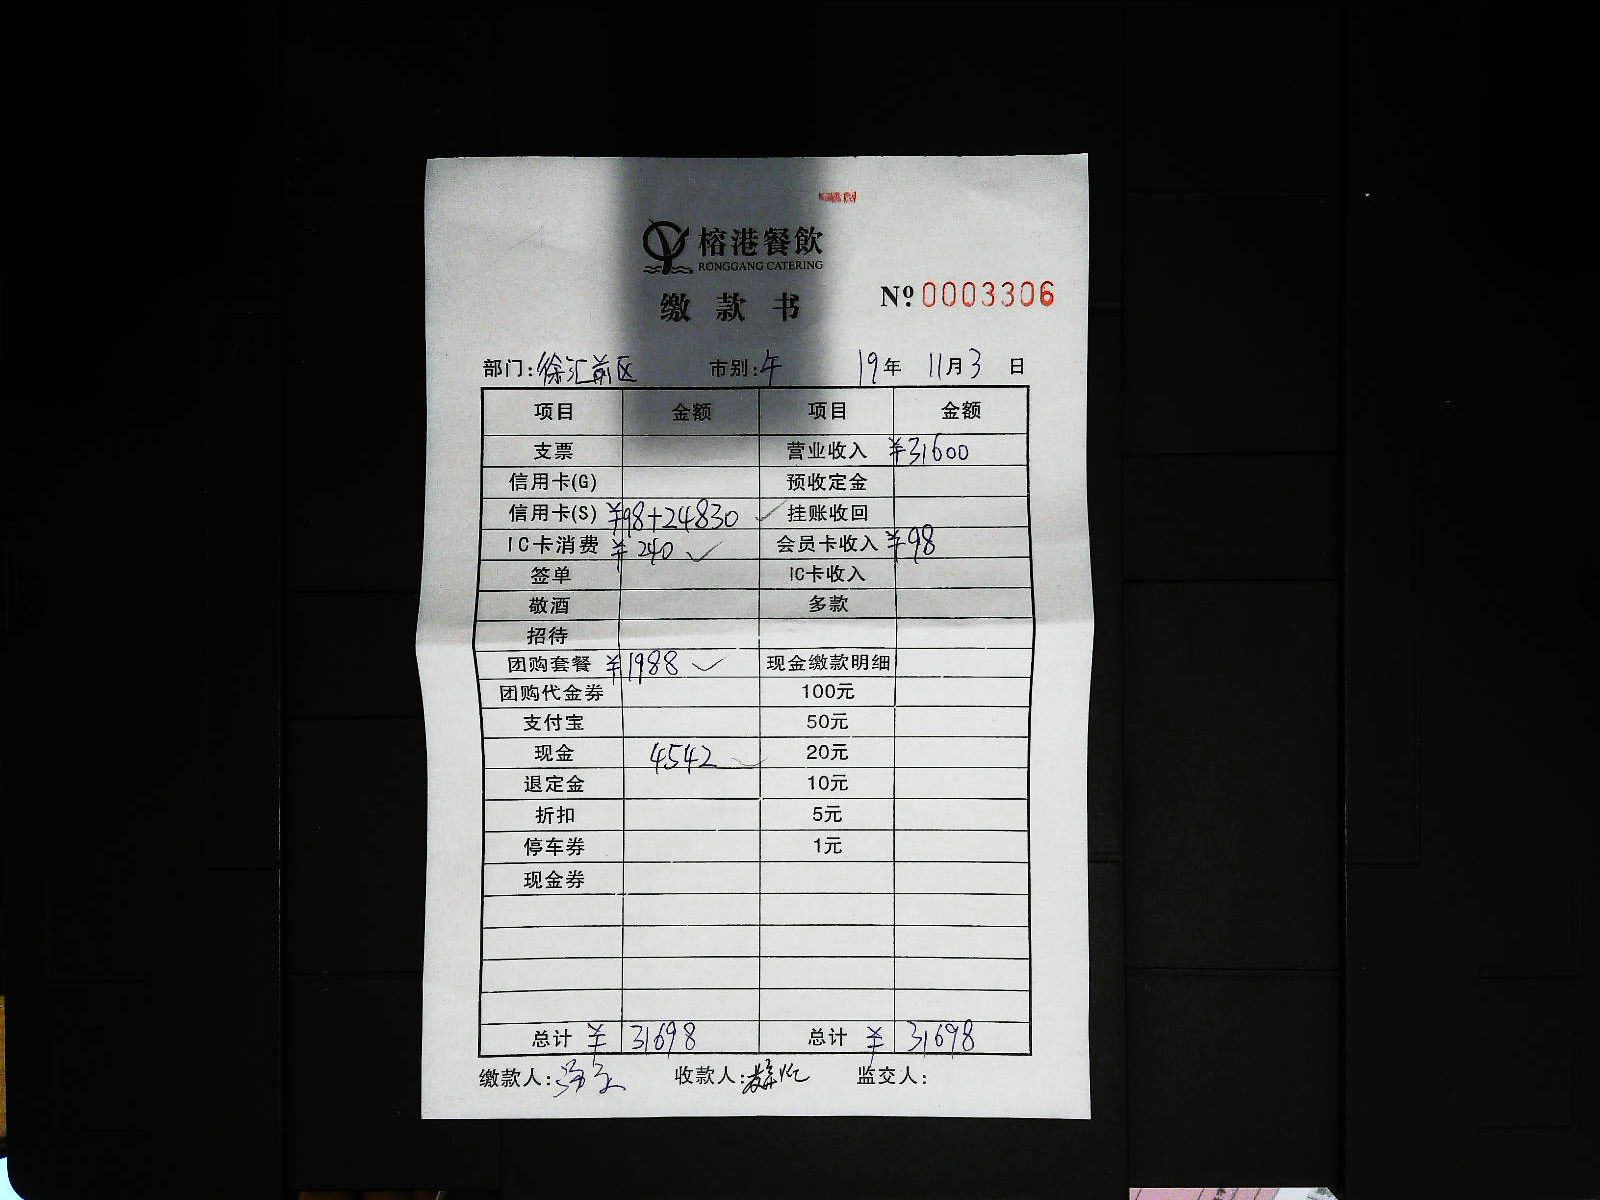 榕港餐飲
RONGGANG CATERING
缴款书
Nº 0003306
部门：徐汇前区 市别：午 19年 11月3日
项目 金额 项目 金额
支票 营业收入 ¥31600
信用卡(G) 预收定金
信用卡(S) ¥98+24830 ✓ 挂账收回
IC卡消费 ¥240 ✓ 会员卡收入 ¥98
签单 IC卡收入
敬酒 多款
招待
团购套餐 ¥1988 ✓ 现金缴款明细
团购代金券 100元
支付宝 50元
现金 4542 ✓ 20元
退定金 10元
折扣 5元
停车券 1元
现金券
总计 ¥31698 总计 ¥31698
缴款人： 收款人： 监交人：